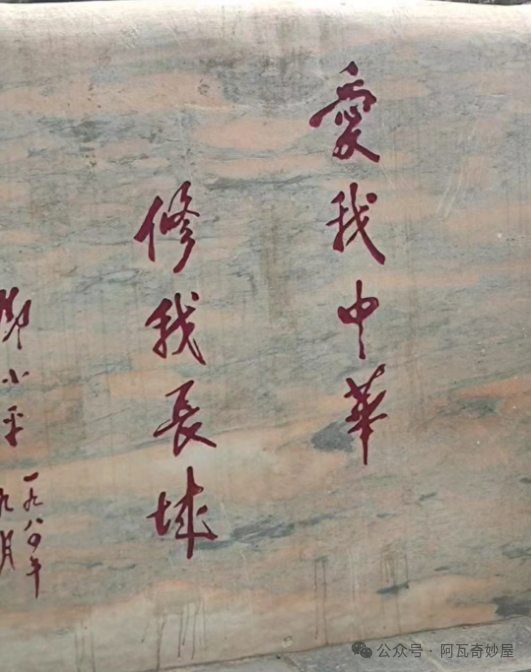 愛我中華
修我長城
鄧小平
一九八四年
九月
公众号 · 阿瓦奇妙屋